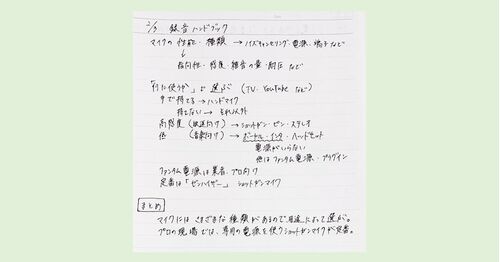 2/7 録音ハンドブック
マイクの性能・種類 → ノイズキャンセリング・電源・端子など
↓
指向性・感度・雑音の量・耐圧 など
「何に使うか」で選ぶ (TV・YouTube など)
手で持てる → ハンドマイク
持てない → それ以外
高感度 (放送向け) → ショットガン・ピン・ステレオ
低 (音楽向け) → ボーカル・インタ・ヘッドセット
電源がいらない
他はファンタム電源・プラグイン
ファンタム電源は業者・プロ向け
定番は「ゼンハイザー」ショットガンマイク
まとめ
マイクにはさまざまな種類があるので用途によって選ぶ。
プロの現場では、専用の電源を使うショットガンマイクが定番。